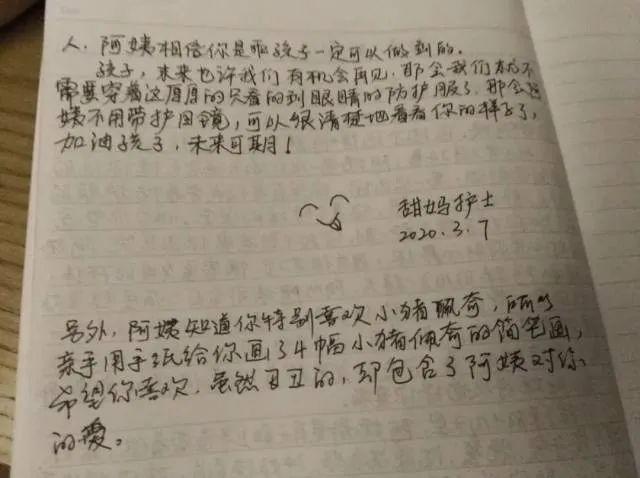 人，阿姨相信你是乖孩子一定可以做到的。
孩子，未来也许我们有机会再见，那会我们就不
需要穿着这厚厚的只看的到眼睛的防护服了，那会阿
姨不用带护目镜，可以很清楚地看看你的样子了，
加油孩子，未来可期！
甜妈护士
2020.3.7
另外，阿姨知道你特别喜欢小猪佩奇，所以
亲手用手纸给你画了4幅小猪佩奇的简笔画，
希望你喜欢，虽然丑丑的，却包含了阿姨对你
的爱。